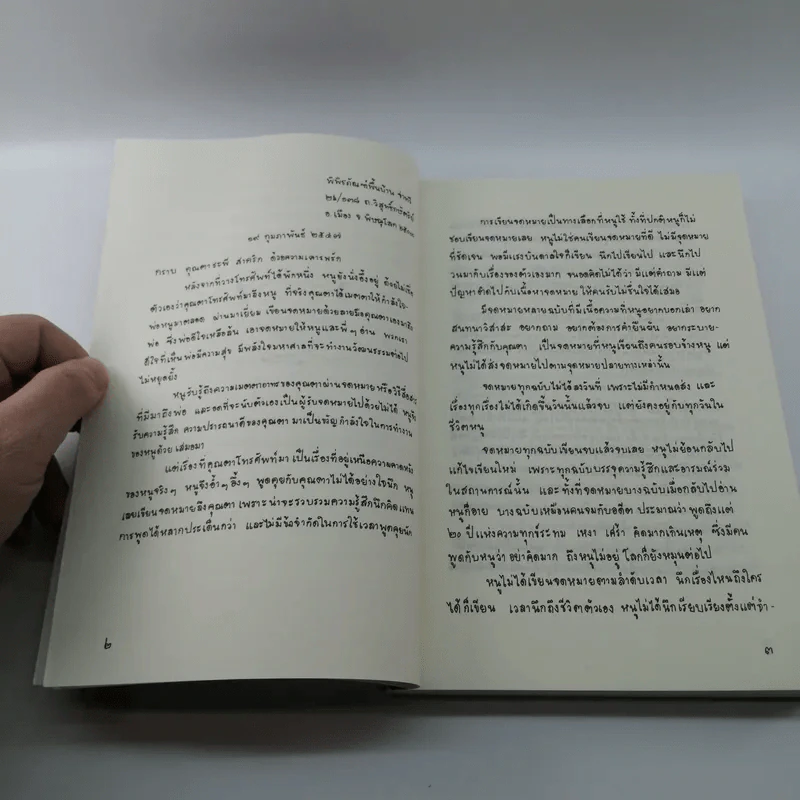 พิพิธภัณฑ์พื้นบ้าน จ่าทวี
๒๖/๑๓๘ ถ.วิสุทธิกษัตริย์
อ.เมือง จ.พิษณุโลก
๑๙ กุมภาพันธ์ ๒๕๔๗
กราบ คุณตาระพี สาคริก ด้วยความเคารพรัก
หลังจากที่วางโทรศัพท์ได้พักหนึ่ง หนูยังนั่งอึ้งอยู่ ด้วยไม่เชื่อ
ตัวเองว่าคุณตาโทรศัพท์มาถึงหนู ที่จริงคุณตาได้เมตตาให้กำลังใจ-
พ่อหนูมาตลอด ผ่านมาเยี่ยม เขียนจดหมายด้วยลายมือคุณตาเองมาถึง
พ่อ ซึ่งพ่อดีใจเหลือล้น เอาจดหมายให้หนูและพี่ๆ อ่าน พวกเรา
ดีใจที่เห็นพ่อมีความสุข มีพลังใจมหาศาลที่จะทำงานวัฒนธรรมต่อไป
ไม่หยุดยั้ง
หนูรับรู้ถึงความเมตตาอาทรของคุณตาผ่านจดหมายหรือวิธีสื่อสาร
ที่มีมาถึงพ่อ และอดที่จะนับตัวเองเป็นผู้รับจดหมายไปด้วยไม่ได้ หนูยัง
รับความรู้สึก ความปรารถนาดีของคุณตา มาเป็นขวัญ กำลังใจในการทำงาน
ของหนูด้วย เสมอมา
แต่เรื่องที่คุณตาโทรศัพท์มา เป็นเรื่องที่อยู่เหนือความคาดหมาย
ของหนูจริงๆ หนูจึงอ้ำๆ อึ้งๆ พูดคุยกับคุณตาไม่ได้อย่างใจนึก หนู
เลยเขียนจดหมายถึงคุณตา เพราะน่าจะรวบรวมความรู้สึกนึกคิดแทน
การพูดได้หลากประเด็นกว่า และไม่มีข้อจำกัดในการใช้เวลาพูดคุยนัก
๒
การเขียนจดหมายเป็นทางเลือกที่หนูใช้ ทั้งที่ปกติหนูก็ไม่
ชอบเขียนจดหมายเลย หนูไม่ใช่คนเขียนจดหมายที่ดี ไม่มีจุดหมาย
ที่ชัดเจน พอมีแรงบันดาลใจก็เขียน นึกไปเขียนไป และนึก
วนมากับเรื่องของตัวเองมาก จนอดคิดไม่ได้ว่า มีแต่คำถาม มีแต่
ปัญหาติดไปกับเนื้อหาจดหมาย ให้คนรับไม่ชื่นใจได้เสมอ
มีจดหมายหลายฉบับที่มีเนื้อความที่หนูอยากบอกเล่า อยาก
สนทนาวิสาสะ อยากถาม อยากต้องการคำยืนยัน อยากระบาย-
ความรู้สึกกับคุณตา เป็นจดหมายที่หนูเขียนถึงคนรอบข้างหนู แต่
หนูไม่ได้ส่งจดหมายไปตามจุดหมายปลายทางเหล่านั้น
จดหมายทุกฉบับไม่ได้ลงวันที่ เพราะไม่มีกำหนดส่ง และ
เรื่องทุกเรื่องไม่ได้เกิดขึ้นวันนั้นแล้วจบ แต่ยังคงอยู่กับทุกวันใน
ชีวิตหนู
จดหมายทุกฉบับเขียนจบแล้วจบเลย หนูไม่ย้อนกลับไป
แก้ไขเขียนใหม่ เพราะทุกฉบับบรรจุความรู้สึกและอารมณ์ร่วม
ในสถานการณ์นั้น และทั้งที่จดหมายบางฉบับเมื่อกลับไปอ่าน
หนูก็อาย บางฉบับเหมือนคนจมกับอดีต ประมาณว่า พูดถึงแต่
๒๐ ปีแห่งความทุกข์ระทม เหงา เศร้า คิดมากเกินเหตุ ซึ่งมีคน
พูดกับหนูว่า อย่าคิดมาก ถึงหนูไม่อยู่ โลกก็ยังหมุนต่อไป
หนูไม่ได้เขียนจดหมายตามลำดับเวลา นึกเรื่องไหนถึงใคร
ได้ก็เขียน เวลานึกถึงชีวิตตัวเอง หนูไม่ได้นึกเรียบเรียงตั้งแต่จำ-
๓